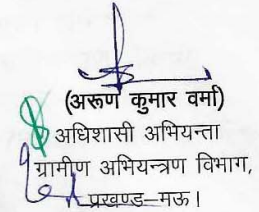 (अरूण कुमार वर्मा)
अधिशासी अभियन्ता
ग्रामीण अभियन्त्रण विभाग,
प्रखण्ड–मऊ।